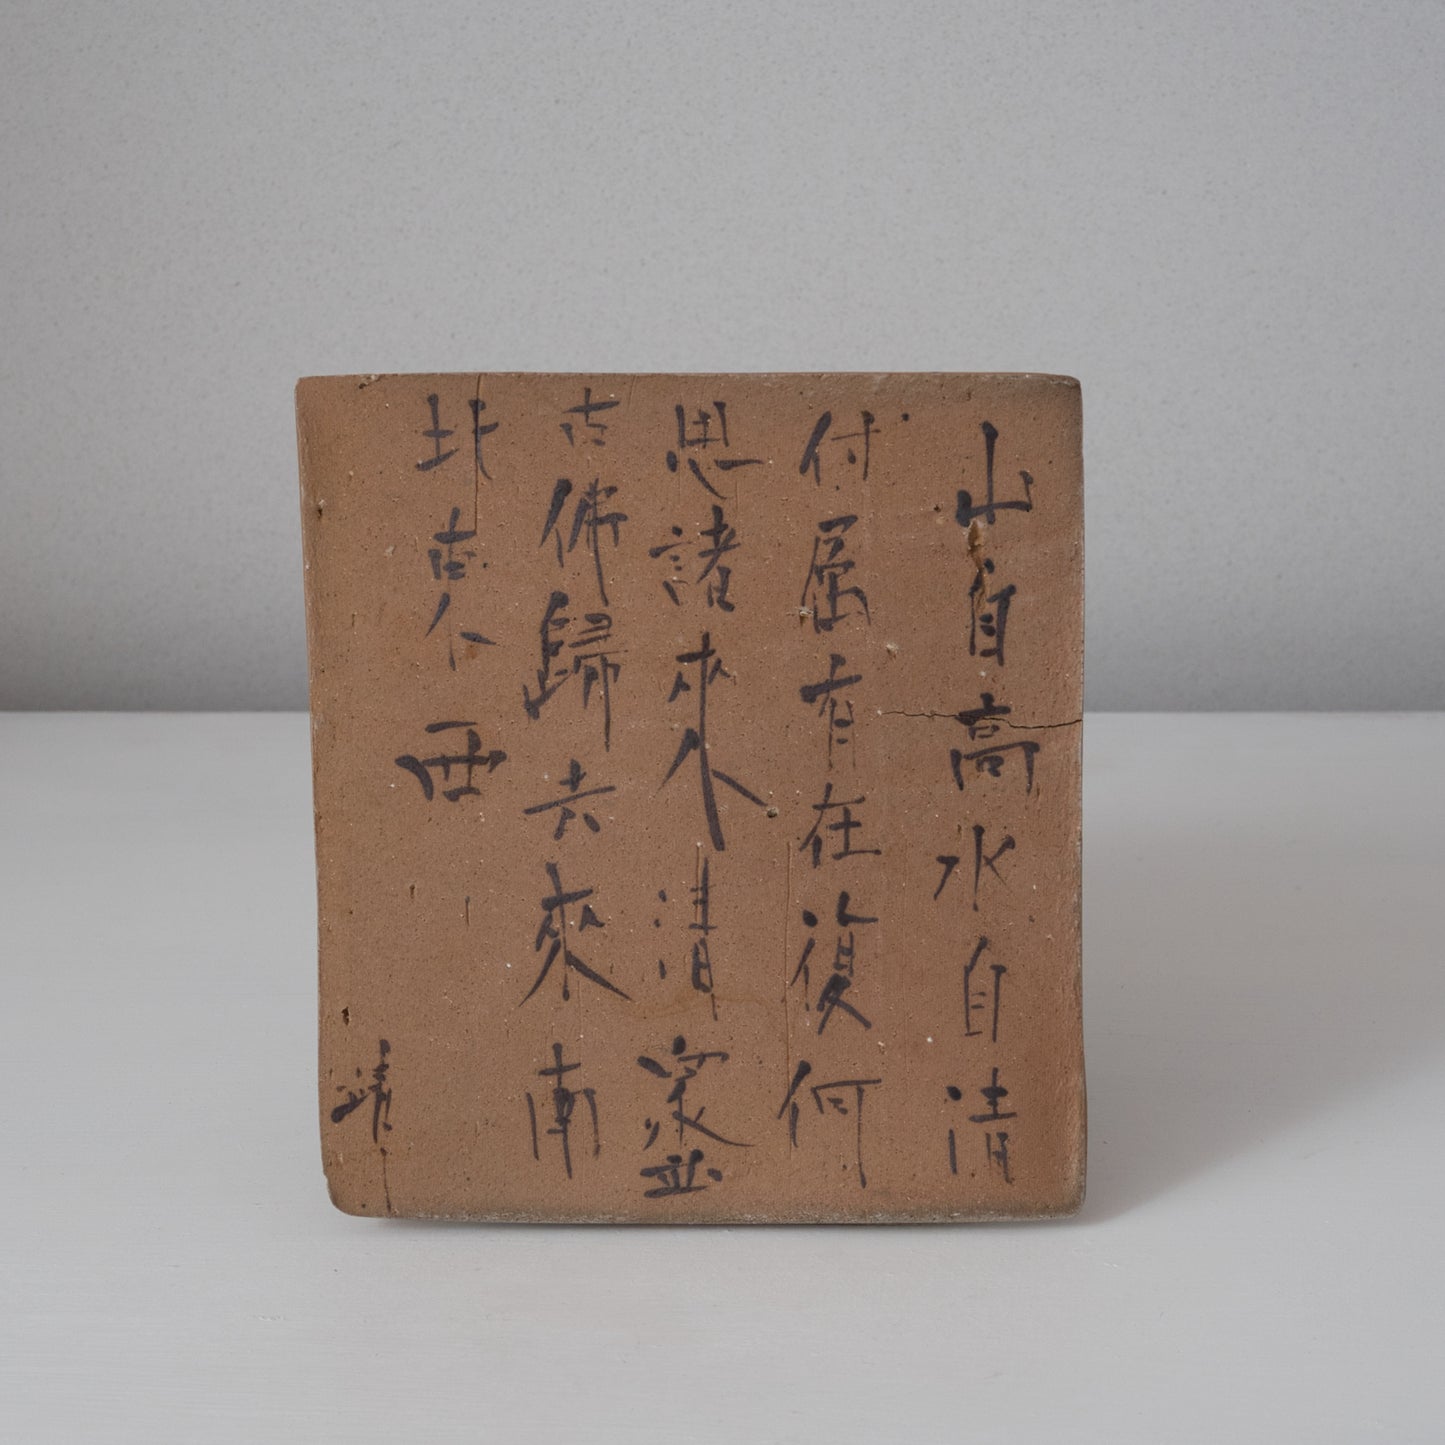 山自高水自清
付屬有在復何
思諸來人清眾並
古佛歸去來南
北東不西
靖